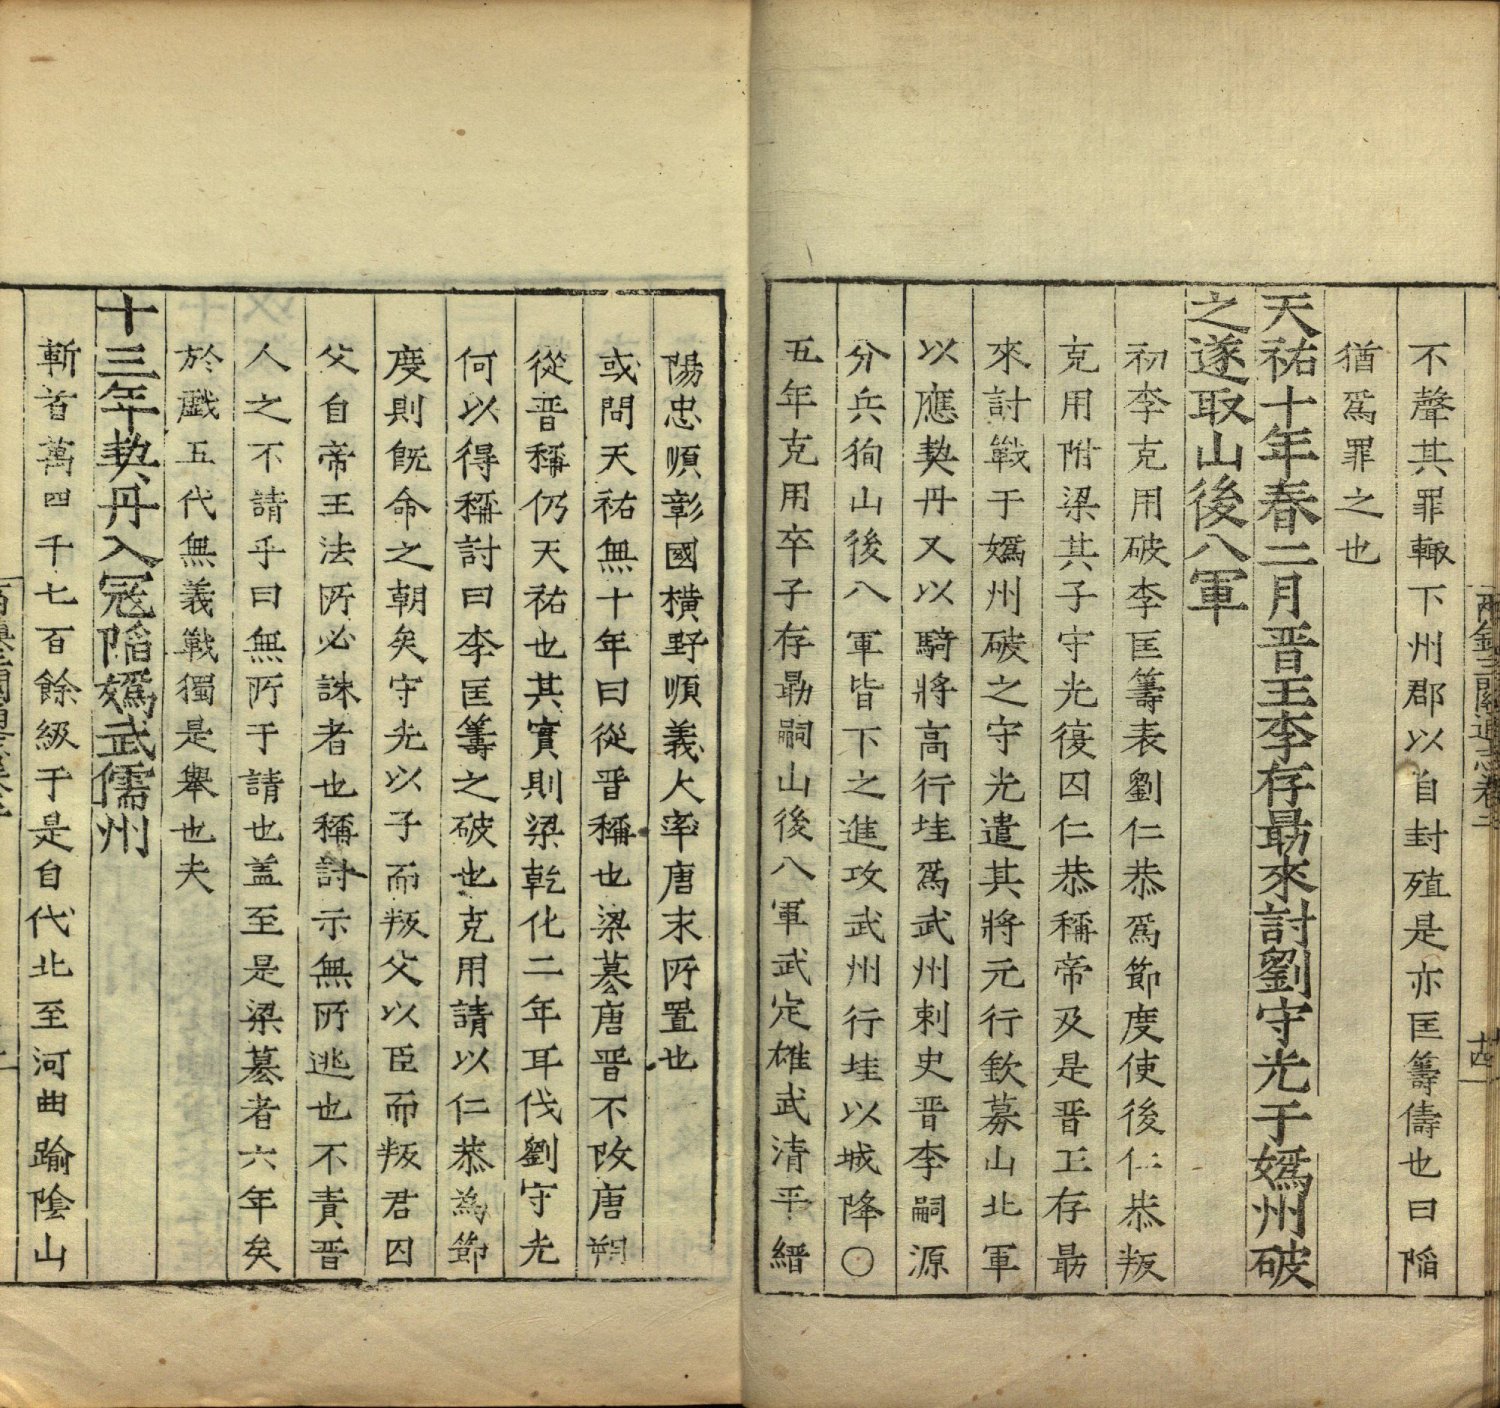 兩鎮三關通志卷二
十四
不聲其罪輙下州郡以自封殖是亦匡籌儔也曰陷
猶爲罪之也
天祐十年春二月晋王李存勗來討劉守光于嬀州破
之遂取山後八軍
初李克用破李匡籌表劉仁恭爲節度使後仁恭叛
克用附梁其子守光復囚仁恭稱帝及是晋王存勗
來討戰于嬀州破之守光遣其將元行欽募山北軍
以應契丹又以騎將高行珪爲武州刺史晋李嗣源
分兵狥山後八軍皆下之進攻武州行珪以城降〇
五年克用卒子存勗嗣山後八軍武定雄武清平縉
陽忠順彰國橫野順義大率唐末所置也
或問天祐無十年曰從晋稱也梁墓唐晋不改唐朔
從晋稱仍天祐也其實則梁乾化二年耳伐劉守光
何以得稱討曰李匡籌之破也克用請以仁恭為節
度則旣命之朝矣守光以子而叛父以臣而叛君囚
父自帝王法所必誅者也稱討示無所逃也不責晋
人之不請乎曰無所于請也盖至是梁墓者六年矣
於戲五代無義戰獨是舉也夫
十三年契丹入冦陷嬀武儒州
斬首萬四千七百餘級于是自代北至河曲踰陰山